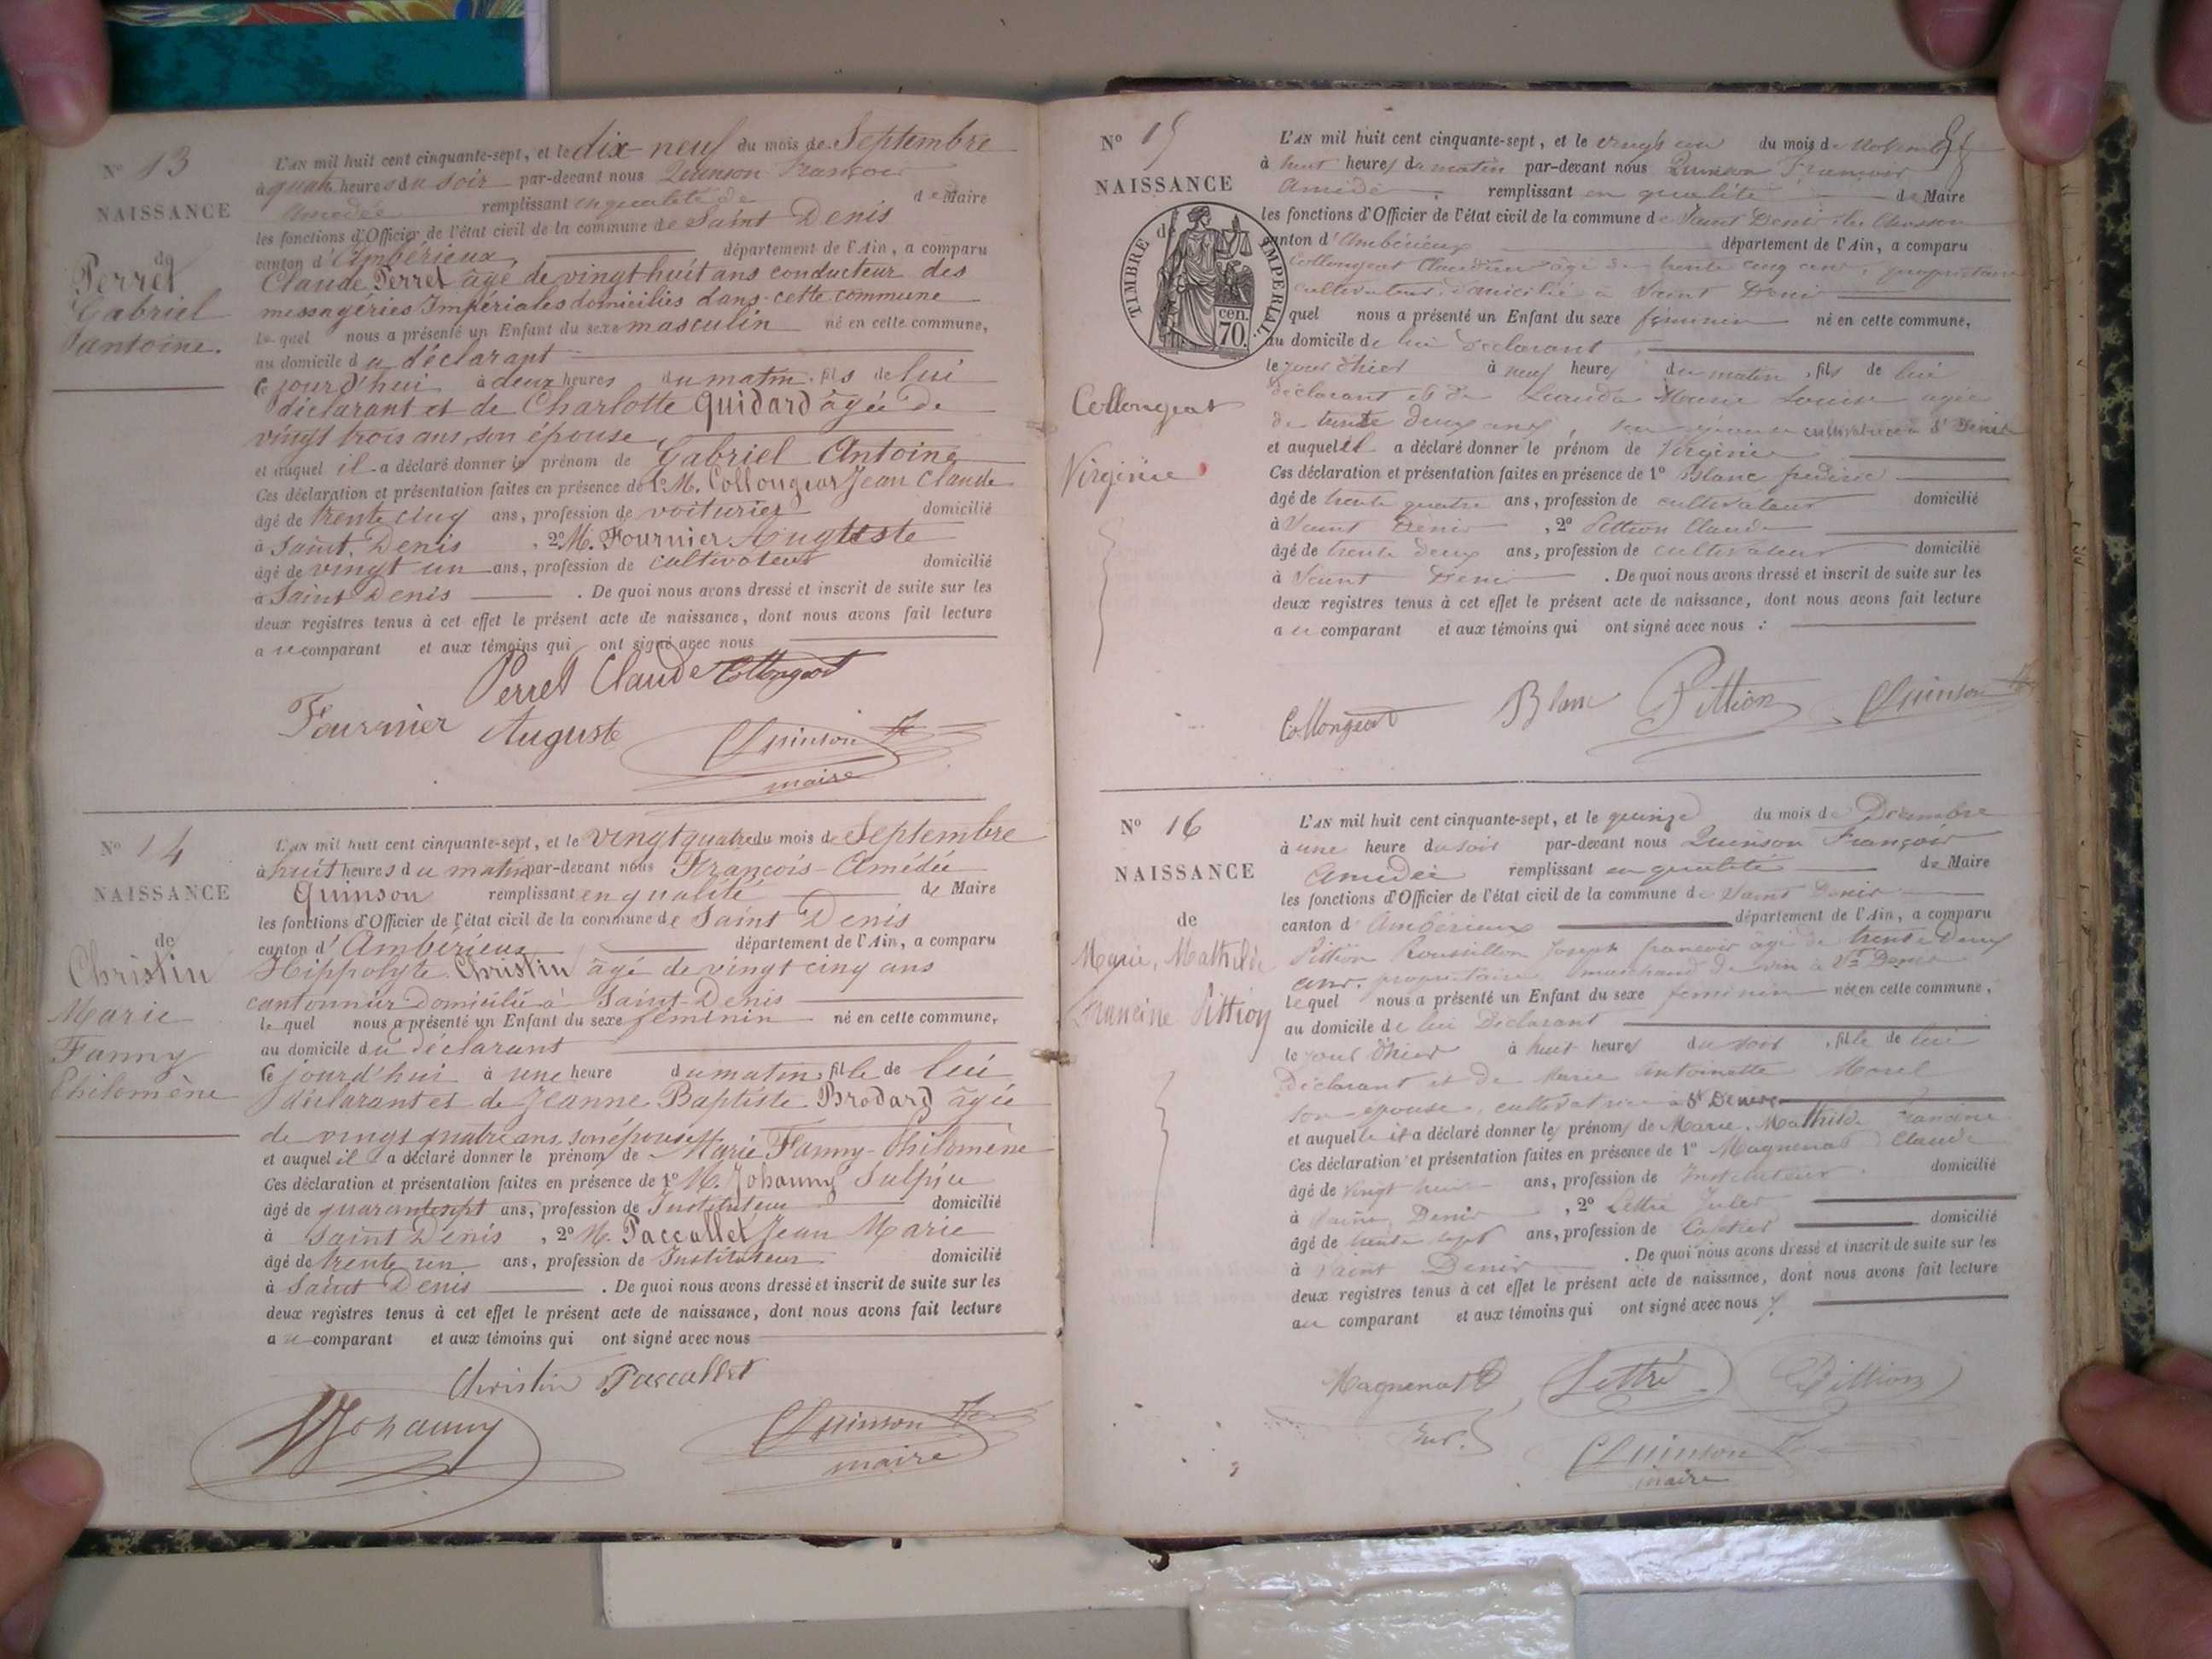 N° 13
NAISSANCE
de
Perret
Gabriel
antoine.
L'AN mil huit cent cinquante-sept, et le dix-neuf du mois de Septembre
à quatre heures du soir par-devant nous Quinson François
Amédée remplissant en qualité de de Maire
les fonctions d'Officier de l'état civil de la commune de Saint Denis
canton d'Ambérieux, département de l'Ain, a comparu
Claude Perret âgé de vingt huit ans conducteur des
messageries Impériales domiciliés dans cette commune
lequel nous a présenté un Enfant du sexe masculin né en cette commune,
au domicile du déclarant
ce jourd'hui à deux heures du matin, fils de lui
déclarant et de Charlotte Guidard âgée de
vingt trois ans, son épouse
et auquel il a déclaré donner le prénom de Gabriel Antoine
Ces déclaration et présentation faites en présence de 1° M. Collongeat Jean Claude
âgé de trente cinq ans, profession de voiturier domicilié
à Saint Denis, 2° M. Fournier Auguste
âgé de vingt un ans, profession de cultivateur domicilié
à Saint Denis. De quoi nous avons dressé et inscrit de suite sur les
deux registres tenus à cet effet le présent acte de naissance, dont nous avons fait lecture
au comparant et aux témoins qui ont signé avec nous
Perret Claude Collongeat
Fournier Auguste Quinson
maire
N° 14
NAISSANCE
de
Christin
Marie
Fanny
Philomène
L'AN mil huit cent cinquante-sept, et le vingt quatre du mois de Septembre
à huit heures du matin par-devant nous François-Amédée
Quinson remplissant en qualité de Maire
les fonctions d'Officier de l'état civil de la commune de Saint Denis
canton d'Ambérieux département de l'Ain, a comparu
Hippolyte Christin âgé de vingt cinq ans
cantonnier domicilié à Saint-Denis
lequel nous a présenté un Enfant du sexe féminin né en cette commune,
au domicile du déclarant
ce jourd'hui à une heure du matin, fille de lui
déclarant et de Jeanne Baptiste Brodard âgée
de vingt quatre ans, son épouse
et auquel il a déclaré donner le prénom de Marie Fanny-Philomène
Ces déclaration et présentation faites en présence de 1° M. Johanny Sulpice
âgé de quarante sept ans, profession de Instituteur domicilié
à Saint Denis, 2° M. Paccallet Jean Marie
âgé de trente un ans, profession de Instituteur domicilié
à Saint Denis. De quoi nous avons dressé et inscrit de suite sur les
deux registres tenus à cet effet le présent acte de naissance, dont nous avons fait lecture
au comparant et aux témoins qui ont signé avec nous
Christin Paccallet
Johanny Quinson
maire
N° 15
NAISSANCE
de
TIMBRE IMPERIAL
70. cen.
Collongeat
Virginie
L'AN mil huit cent cinquante-sept, et le vingt un du mois de Novembre
à huit heures du matin par-devant nous Quinson François
Amédé remplissant en qualité de Maire
les fonctions d'Officier de l'état civil de la commune de Saint Denis le Chosson
canton d'Ambérieux département de l'Ain, a comparu
Collongeat Claudien âgé de trente cinq ans, propriétaire
cultivateur domicilié à Saint Denis
quel nous a présenté un Enfant du sexe féminin né en cette commune,
au domicile de lui déclarant,
le jour d'hier à neuf heures du matin, fils de lui
déclarant et de Marie Louise agée
de trente deux ans, son épouse cultivatrice à St Denis
et auquel il a déclaré donner le prénom de Virginie
Ces déclaration et présentation faites en présence de 1° Blanc fréderic
âgé de trente quatre ans, profession de cultivateur domicilié
à Saint Denis, 2° Pittion Claude
âgé de trente deux ans, profession de cultivateur domicilié
à Saint Denis. De quoi nous avons dressé et inscrit de suite sur les
deux registres tenus à cet effet le présent acte de naissance, dont nous avons fait lecture
au comparant et aux témoins qui ont signé avec nous :
Collongeat Blanc Pittion Quinson
N° 16
NAISSANCE
de
Marie, Mathilde
Francine Pittion
L'AN mil huit cent cinquante-sept, et le quinze du mois de Décembre
à une heure du soir par-devant nous Quinson François
Amédée remplissant en qualité de Maire
les fonctions d'Officier de l'état civil de la commune de Saint Denis
canton d'Ambérieux département de l'Ain, a comparu
Pittion Roussillon Joseph françois âgé de trente deux
ans, propriétaire, marchand de vin à St Denis
lequel nous a présenté un Enfant du sexe féminin née en cette commune,
au domicile de lui Déclarant
le jour d'hier à huit heures du soir, fille de lui
Déclarant et de Marie Antoinette Morel
son épouse, cultivatrice à St Denis
et auquelle il a déclaré donner les prénoms de Marie, Mathilde Francine
Ces déclaration et présentation faites en présence de 1° Magnenat Claude
âgé de vingt huit ans, profession de Instituteur domicilié
à Saint Denis, 2° Lettré Jules
âgé de trente sept ans, profession de domicilié
à Saint Denis. De quoi nous avons dressé et inscrit de suite sur les
deux registres tenus à cet effet le présent acte de naissance, dont nous avons fait lecture
au comparant et aux témoins qui ont signé avec nous
Magnenat Lettré Pittion
Quinson
maire